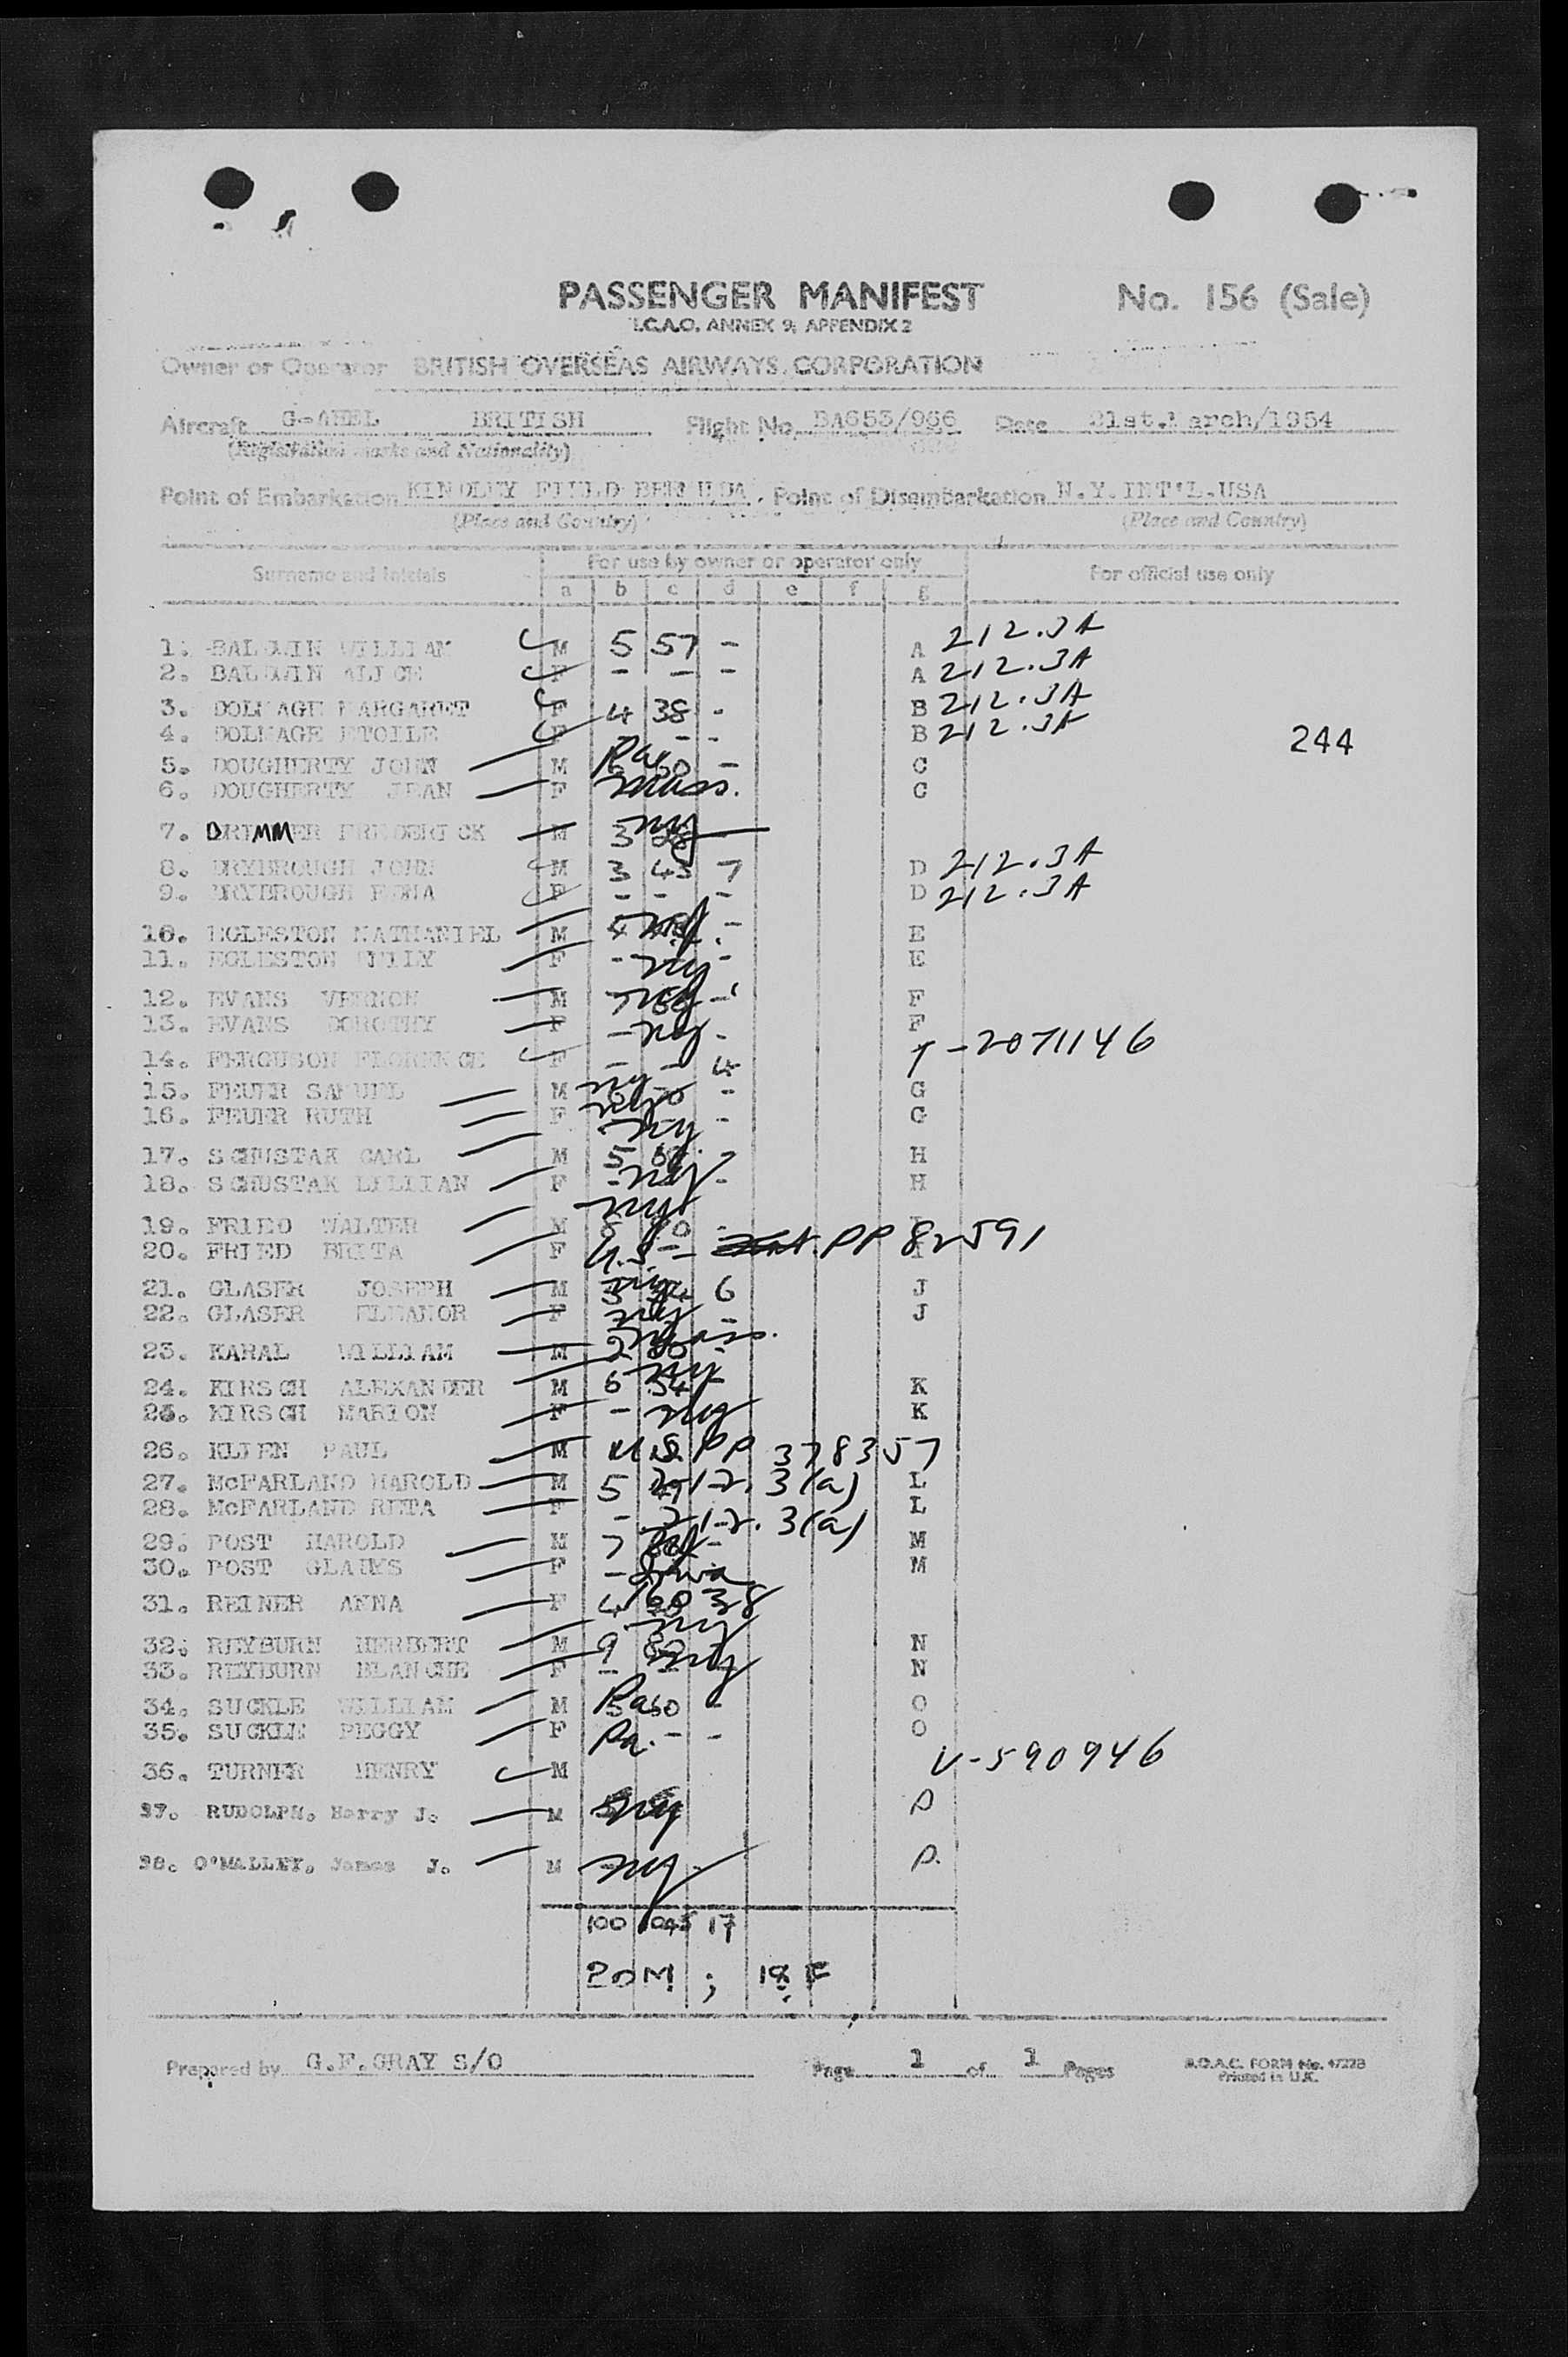 PASSENGER MANIFEST No. 156 (Sale)
I.C.A.O. ANNEX 9, APPENDIX 2
Owner or Operator BRITISH OVERSEAS AIRWAYS CORPORATION
Aircraft G-AHEL BRITISH Flight No. BA655/966 Date 21st.March/1954
(Registration marks and Nationality)
Point of Embarkation KINDLEY FIELD BERMUDA. Point of Disembarkation N.Y.INT'L.USA
(Place and Country) (Place and Country)
Surname and Initials For use by owner or operator only For official use only
a b c d e f g
1. BALDWIN WILLIAM M 5 57 - A 212.3A
2. BALDWIN ALICE F - - - A 212.3A
3. DOLMAGE MARGARET F 4 38 - B 212.3A
4. DOLMAGE ETOILE F - - - B 212.3A
244
5. DOUGHERTY JOHN M Pa. - C
6. DOUGHERTY JEAN F Mass. C
7. DRIMMER FREDERICK M 3 NY
8. DRYBROUGH JOHN M 3 43 7 D 212.3A
9. DRYBROUGH EDNA F - - - D 212.3A
10. EGLESTON NATHANIEL M NY - E
11. EGLESTON EMILY F - NY - E
12. EVANS VERNON M 7 NY - F
13. EVANS DOROTHY F - NY - F
14. FERGUSON FLORENCE F - - 4 T-2071146
15. FEUER SAMUEL M NY - G
16. FEUER RUTH F NY - G
17. SCHUSTAK CARL M 5 NY - H
18. SCHUSTAK LILLIAN F - NY - H
19. FRIED WALTER M NY -
20. FRIED BRITA F U.S. - PP 82591
21. GLASER JOSEPH M 3 NY 6 J
22. GLASER ELEANOR F NY - J
23. KARAL WILLIAM M 2
24. KIRSCH ALEXANDER M 6 54 NY - K
25. KIRSCH MARION F - NY K
26. KLIEN PAUL M U.S. PP 378357
27. McFARLAND HAROLD M 5 212.3(a) L
28. McFARLAND RETA F - 212.3(a) L
29. POST HAROLD M 7 NY - M
30. POST GLADYS F - Iowa M
31. REINER ANNA F 4
32. REYBURN HERBERT M 9 NY N
33. REYBURN BLANCHE F - NY N
34. SUCKLE WILLIAM M Pa. 5 60 - O
35. SUCKLE PEGGY F Pa. - - O
36. TURNER HENRY M V-590946
37. RUDOLPH, Harry J. M NY P
38. O'MALLEY, James J. M NY - P.
100 1045 17
20M ; 18 F
Prepared by G.F.GRAY S/O Page 1 of 1 Pages B.O.A.C. FORM No. 4722B
Printed in U.K.